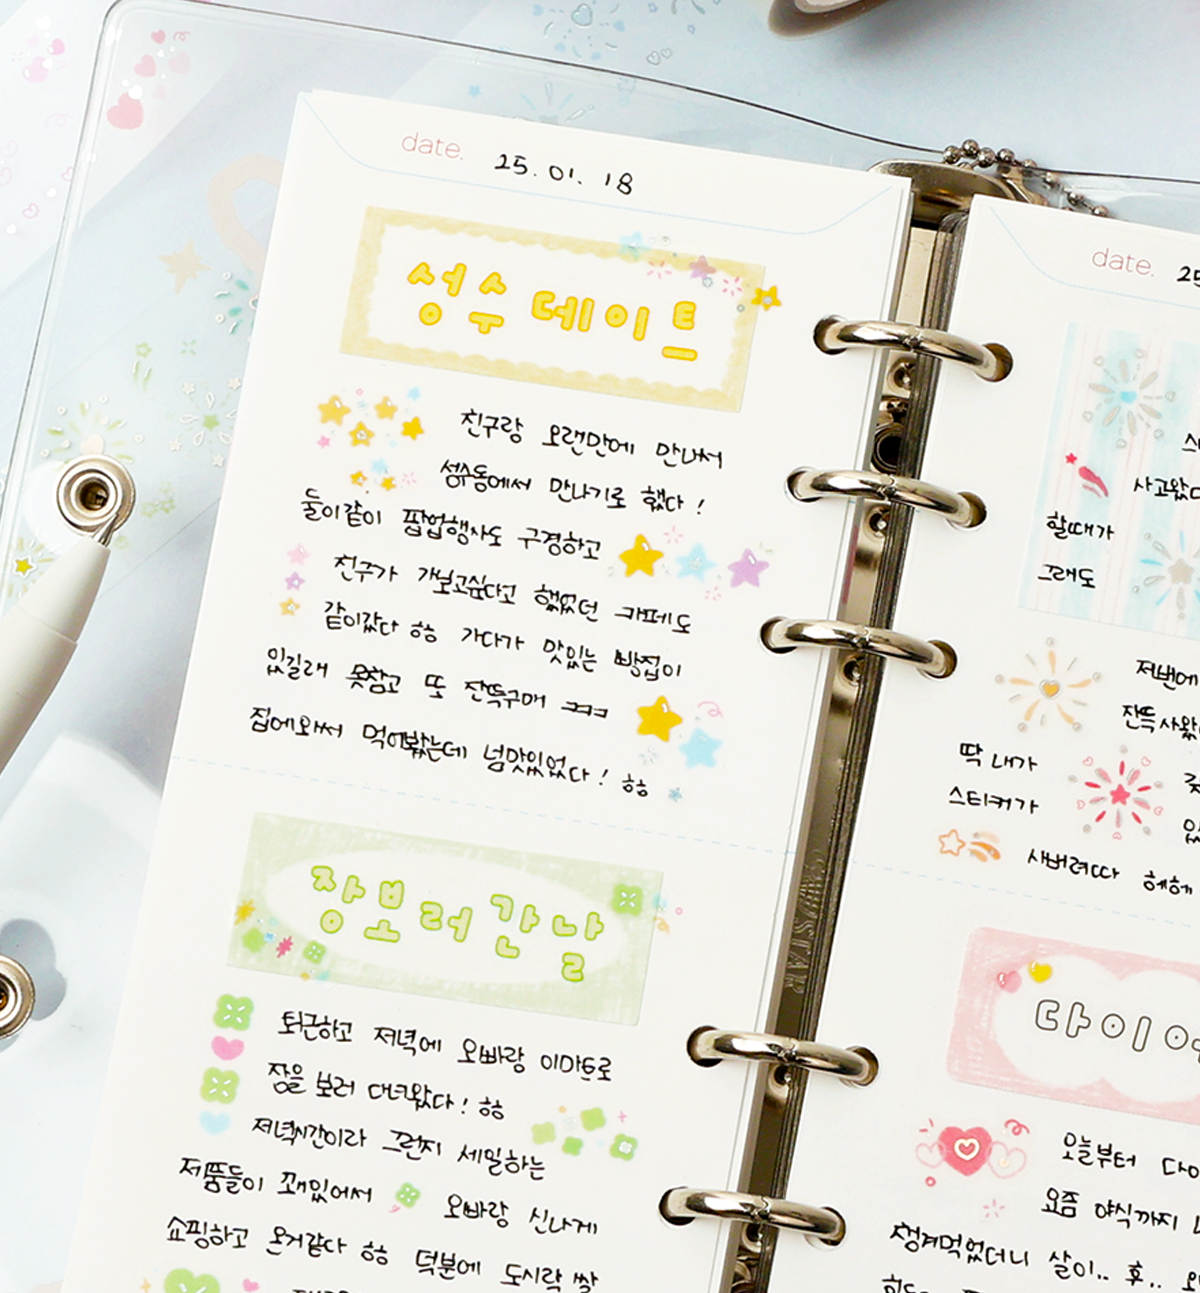 date. 25. 01. 18
성수데이트
친구랑 오랜만에 만나서
성수동에서 만나기로 했다!
둘이같이 팝업행사도 구경하고
친구가 가보고싶다고 했었던 카페도
같이갔다 ㅎㅎ 가다가 맛있는 빵집이
있길래 못참고 또 잔뜩구매 ㅋㅋㅋ
집에와서 먹어봤는데 넘맛있었다! ㅎㅎ
장보러간날
퇴근하고 저녁에 오빠랑 이마트로
장을 보러 다녀왔다! ㅎㅎ
저녁시간이라 그런지 세일하는
제품들이 꽤있어서 오빠랑 신나게
쇼핑하고 온거같다 ㅎㅎ 덕분에 도시락 쌀
date. 25
사고왔다
할때가
그래도
저번에
잔뜩사왔
딱 내가
스티커가
사버려따 헤헤
다이어
오늘부터 다이
요즘 야식까지
챙겨먹었더니 살이.. 후..